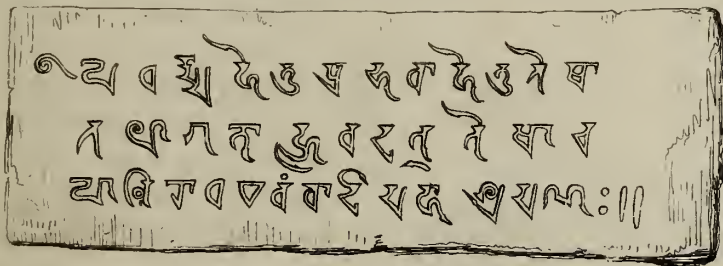 ये धर्म्मा हेतुप्रभवा हेतु तेषा
तथागत ह्यवदत् तेषा च
यो निरोध एवंवादी महाश्रमणः॥